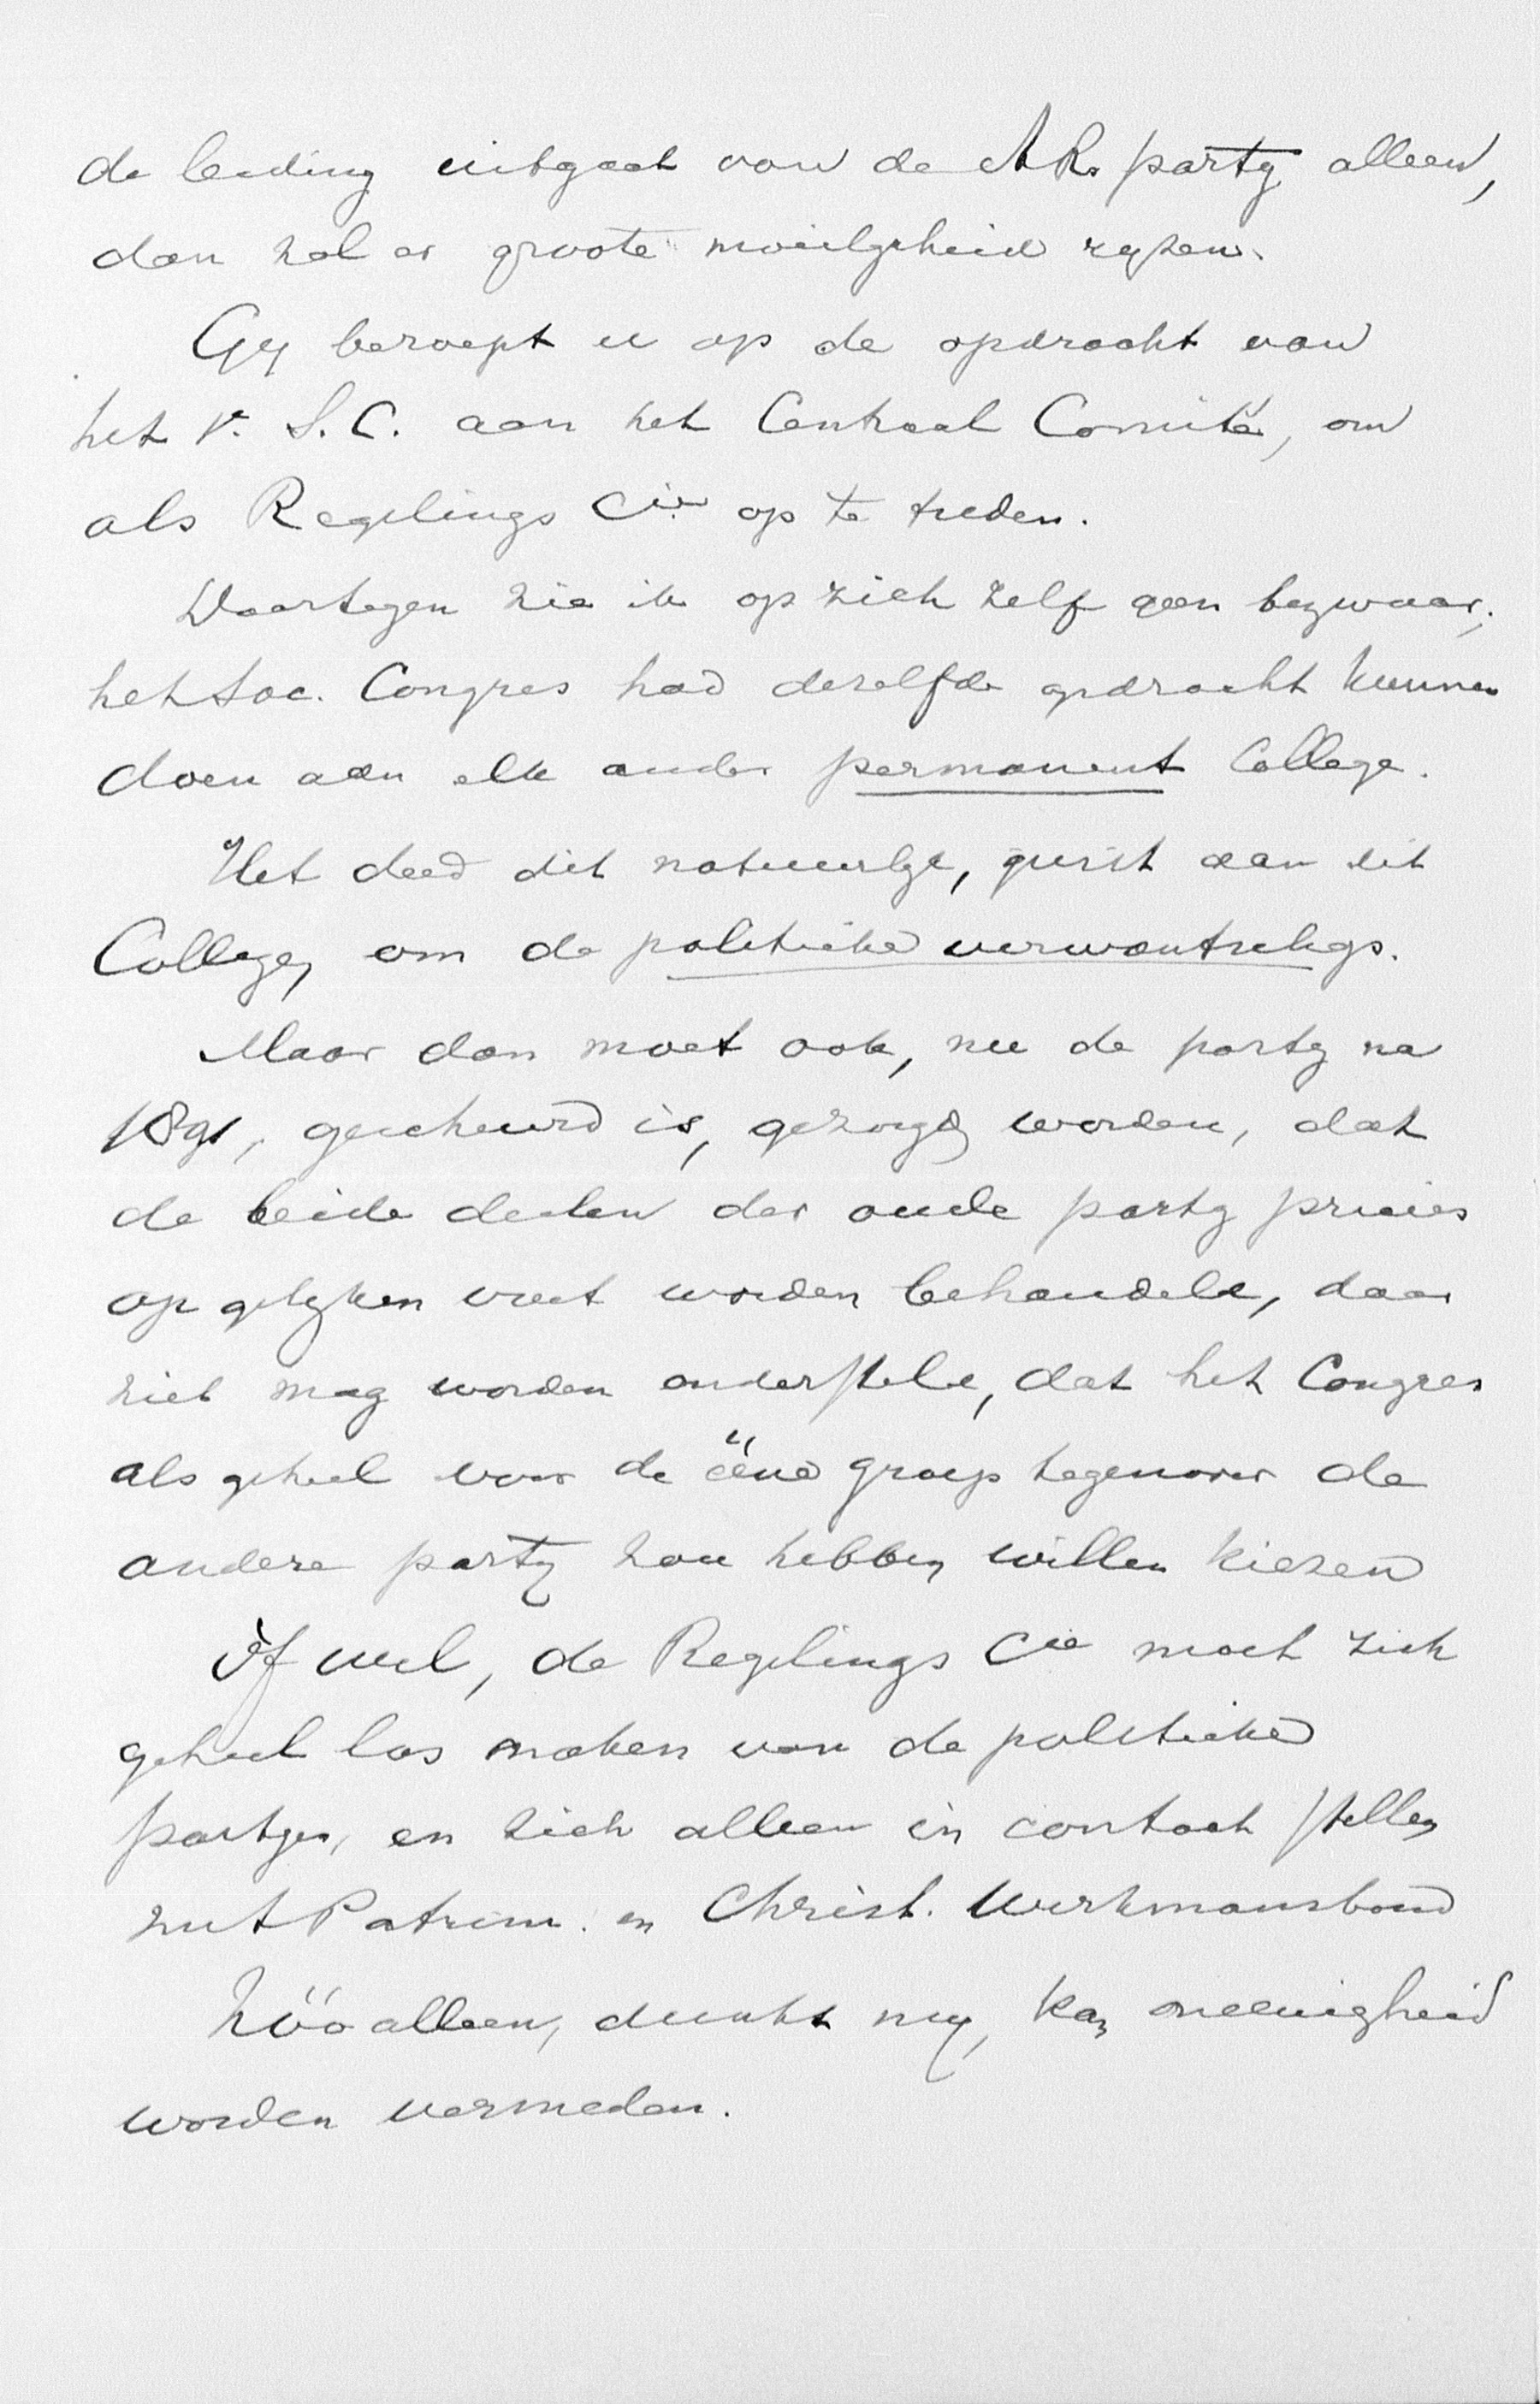 de leiding uitgaat van de AR. party alleen,
dan zal er groote moeilykheid ryzen.
Gy beroept u op de opdracht van
het v. S. C. aan het Centraal Comité, om
als Regelings Cie op te treden.
Daartegen zie ik op zich zelf geen bezwaar;
het Soc. Congres had dezelfde opdracht kunnen
doen aan elk ander permanent College.
Het deed dit natuurlyk, juist aan dit
College, om de politieke verwantschap.
Maar dan moet ook, nu de party na
1891, gescheurd is, gezorgd worden, dat
de beide deelen der oude party precies
op gelyken voet worden behandeld, daar
niet mag worden ondersteld, dat het Congres
als geheel voor de ééne groep tegenover de
andere party zou hebben willen kiezen
òf wel, de Regelings Cie moet zich
geheel los maken van de politieke
partyen, en zich alleen in contact stellen
met Patrim. en Christ. Werkmansbond
Zóó alleen, dunkt my, kan oneenigheid
worden vermeden.